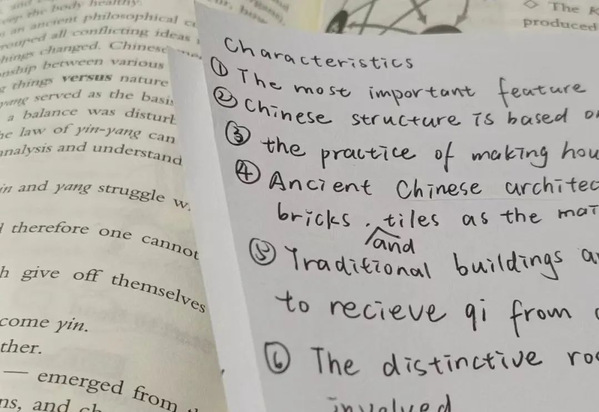 the body healthy.
an ancient philosophical
all conflicting ideas
things changed. Chinese
between various
things versus nature
yang served as the basis
a balance was disturb
the law of yin-yang can
analysis and understand
in and yang struggle w
therefore one cannot
give off themselves
come yin.
ther.
— emerged from
◇ The
produced
Characteristics
① The most important feature
② Chinese structure is based o
③ the practice of making hou
④ Ancient Chinese architec
bricks, tiles as the mai
and
⑤ Traditional buildings a
to recieve qi from
⑥ The distinctive ro
involved